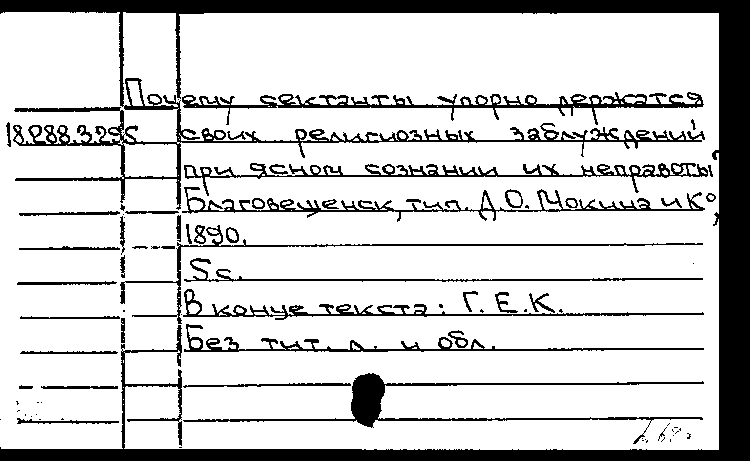 Почему сектанты упорно держатся
18.288.3.295 своих религиозных заблуждений
при ясном сознании их неправоты?
Благовещенск, тип. Д.О. Мокина и К°,
1890.
5 с.
В конце текста: Г. Е. К.
Без тит. л. и обл.